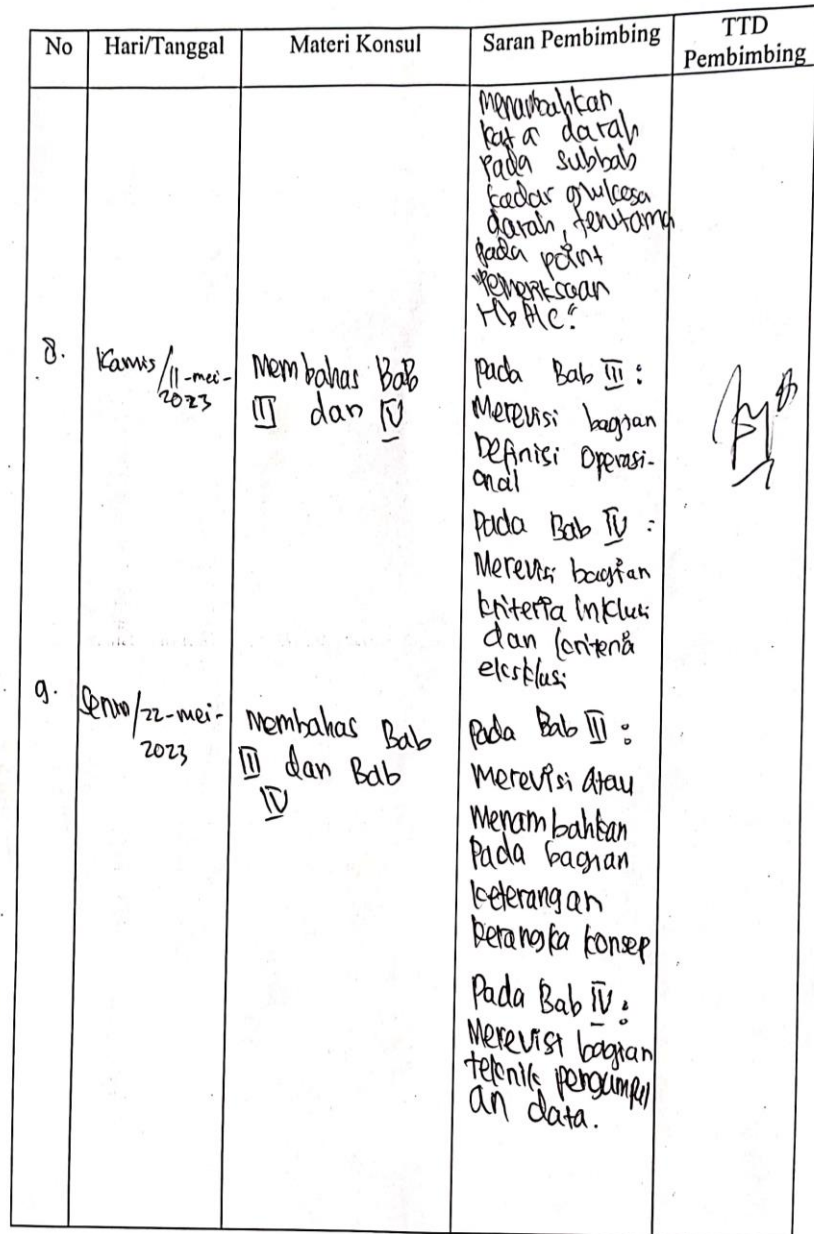 No Hari/Tanggal Materi Konsul Saran Pembimbing TTD Pembimbing
Menambahkan
kata darah
pada subbab
kadar glukosa
darah, terutama
pada point
"Pemeriksaan
HbA1c".
8. Kamis/11-mei-
2023
Membahas Bab
III dan IV
pada Bab III :
Merevisi bagian
Definisi Operasi-
onal
pada Bab IV :
Merevisi bagian
kriteria Inklusi
dan kriteria
eksklusi
9. Senin/22-mei-
2023
Membahas Bab
III dan Bab
IV
pada Bab III :
Merevisi atau
Menambahkan
pada bagian
keterangan
kerangka konsep
Pada Bab IV :
Merevisi bagian
teknik pengumpul
an data.